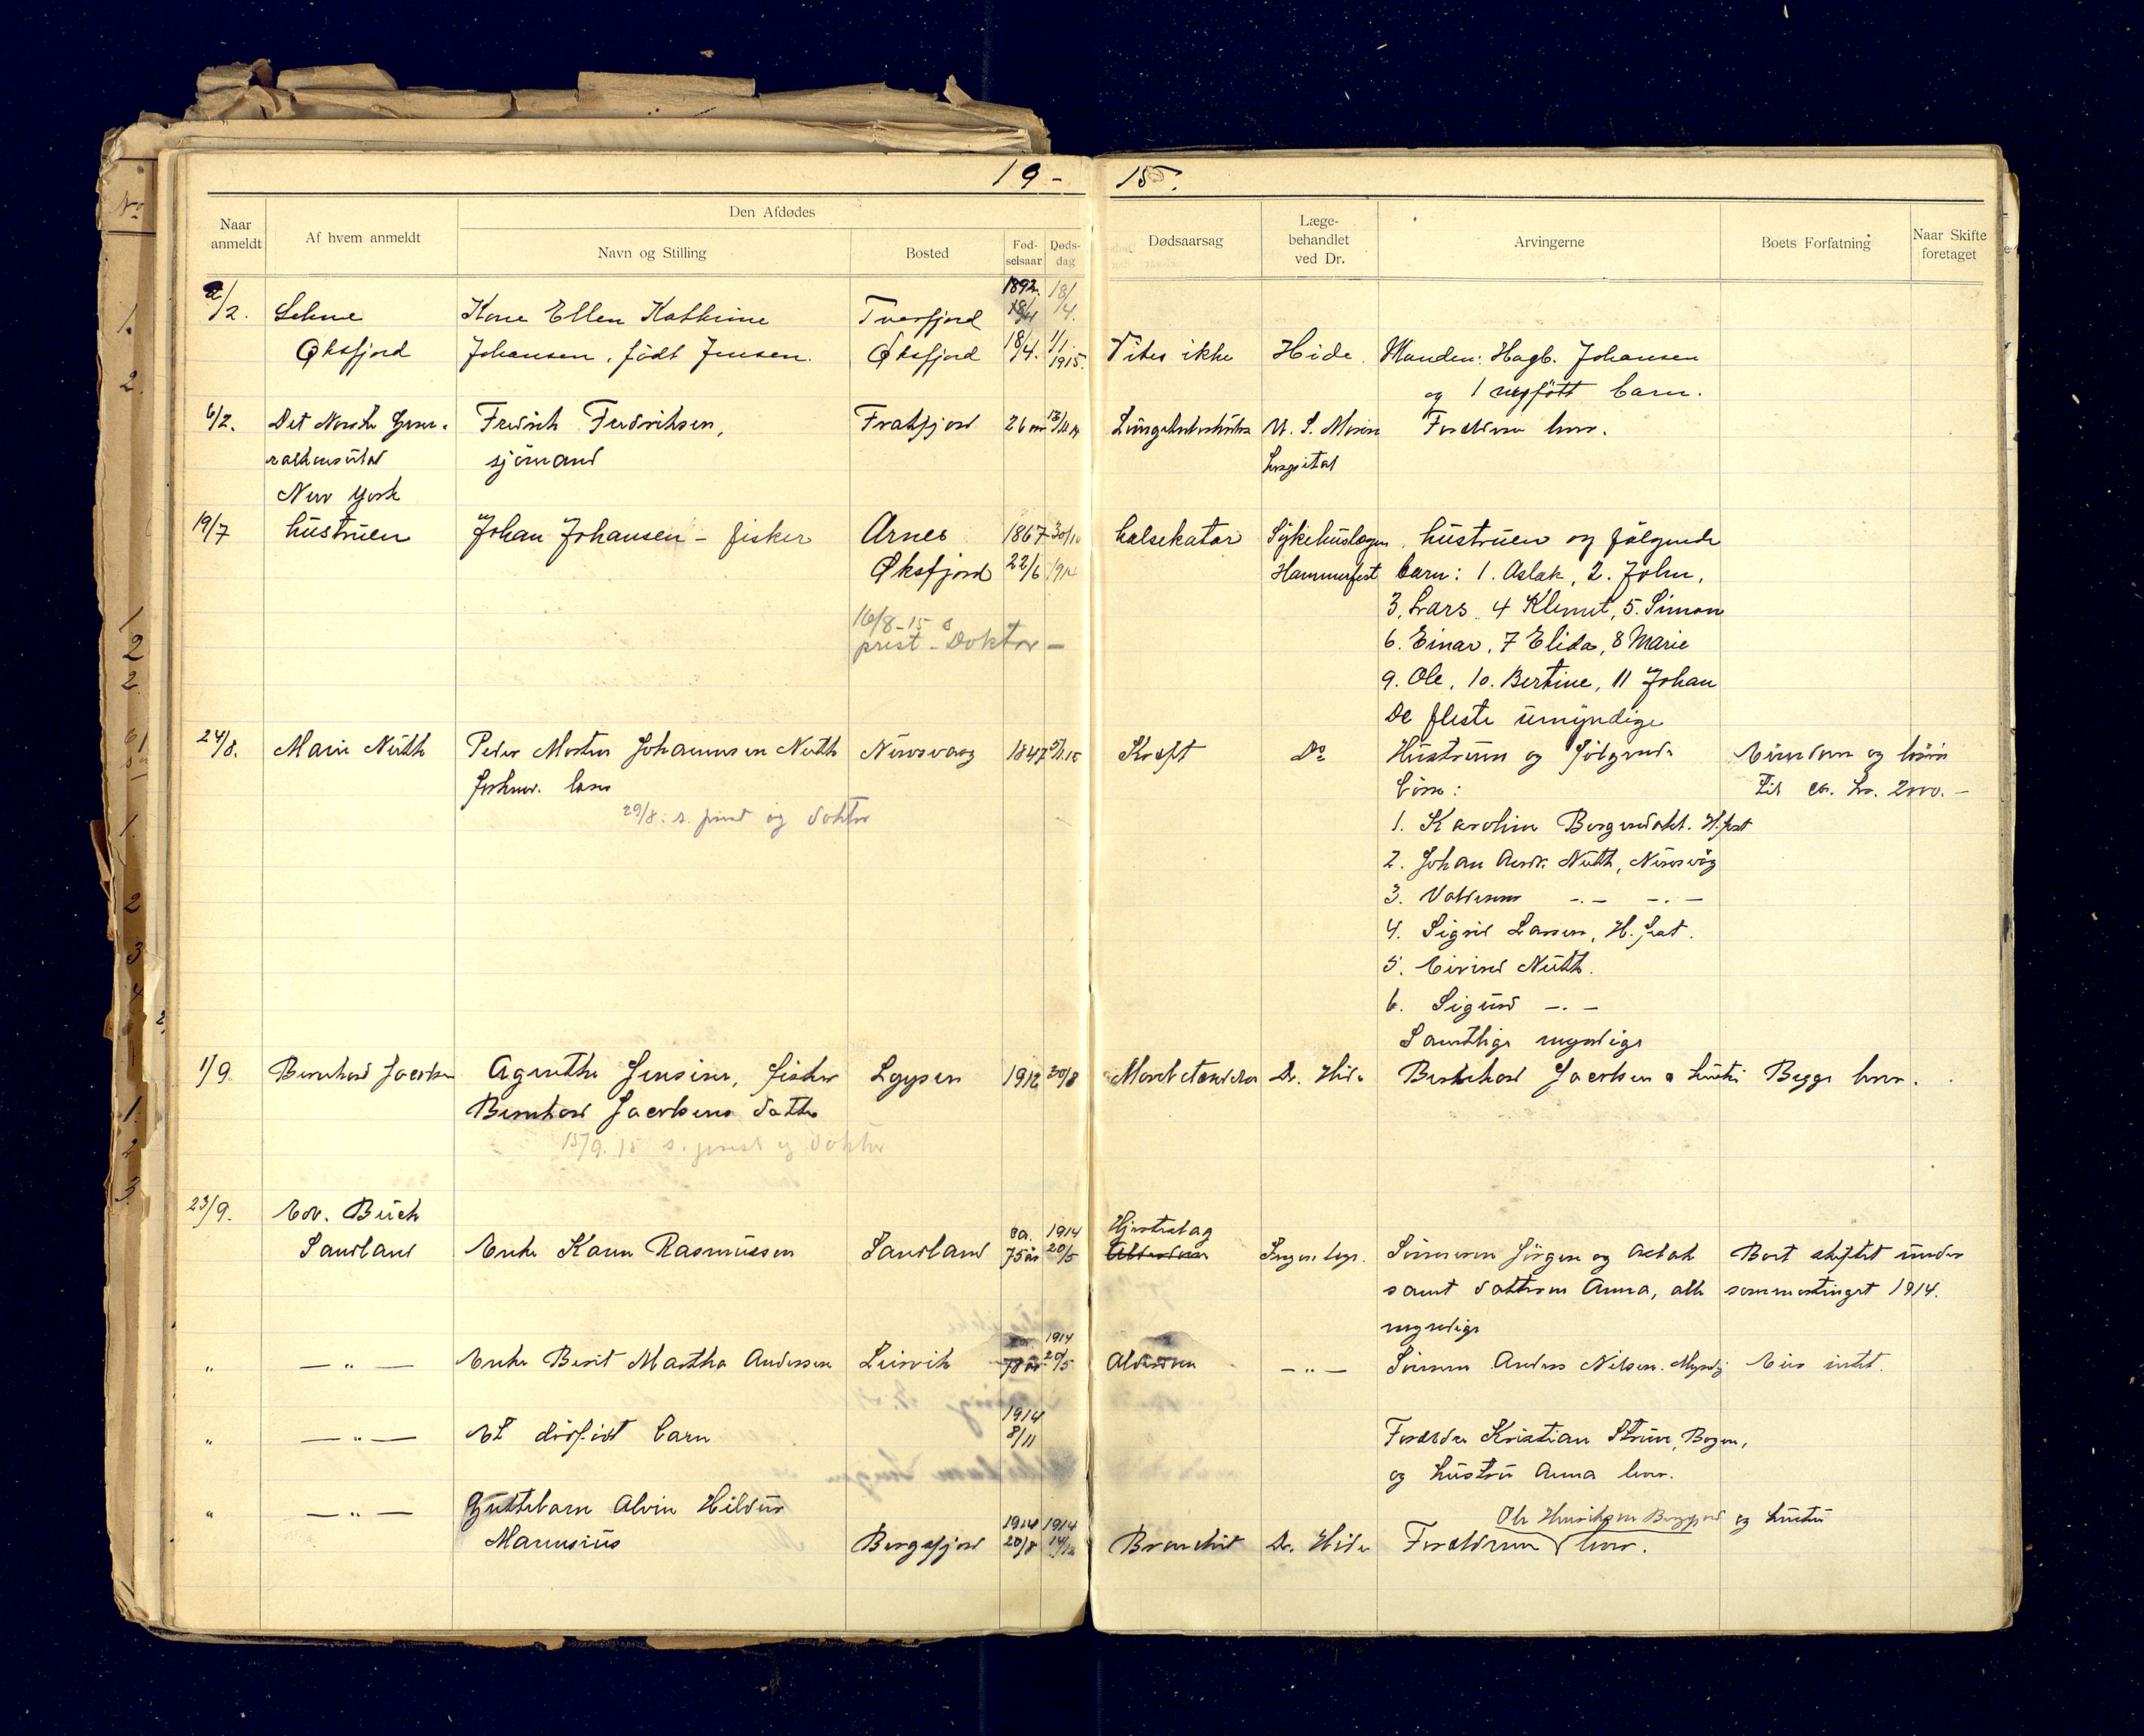 19-15.
Naar anmeldt
Af hvem anmeldt
Den Afdødes
Navn og Stilling
Bosted
Fød-selsaar
Døds-dag
Dødsaarsag
Læge-behandlet ved Dr.
Arvingerne
Boets Forfatning
Naar Skifte foretaget
2/2. Kone Ellen Kathrine Tverfjord 1892. 18/4
Øksfjord Johansen, født Jensen. Øksfjord 18/4. 1/1 1915. Vites ikke Hide. Manden: Hagb. Johansen
og 1 nyfött barn.
6/2. Det Norske Gene- Fredrik Fredriksen, Frakfjord 26 aar Lungetuberkulose U. S. Marine Forældrene lever.
ralkonsulat sjömand hospital
New York
19/7 hustruen Johan Johansen - fisker Arnes 1867 30/10 halsekatar Sykehuslægen hustruen og følgende
Øksfjord 22/6 1914 Hammerfest barn: 1. Aslak, 2. John,
3. Lars. 4 Klemet, 5. Simon
16/8-15 s
prest - Doktor - 6. Einar, 7 Elida, 8 Marie
9. Ole, 10. Bertine, 11 Johan
De fleste umyndige
24/8. Marie Nuth Peder Morten Johannesen Nuth Nuvsvaag 1847 Kræft Do Hustruen og følgende Eiendom og buu
forhenv. børn: til ca. kr. 2000.-
29/8. s. prest og doktor 1. Karoline H.fest
2. Johan Andr. Nuth, Nuvsvåg
3. Valdemar -.- -.-
4. Sigrid Larsen, H.fest.
5. Eivind Nuth.
6. Sigurd -.-
Samtlige myndige
1/9 Bernhard Jacobsen Agnethe Jensine, fisker Loppen 1912 20/8 Dr. Hide Bernhard Jacobsen o hustru Begge lever.
Bernhard Jacobsens datter
15/9. 15 s. prest og doktor
23/9. Edv. Buch Hjerteslag
Sandland Enke Karen Rasmussen Sandland ca. 75 år 1914 20/5 Alderdom Ingen læge. Sønnerne Jørgen og Aslak Boet skiftet under
samt datteren Anna, alle sommertinget 1914.
myndige
" -"- Enke Berit Martha Andersen Lervik 78 år 1914 20/5 Alderdom -"- Sønnen Anders Nilsen. Myndig Eier intet.
" -"- Et dødfödt barn 1914 8/11 Forældre Kristian Strøm, Bogen,
og hustru Anna lever.
" -"- Guttebarn Alvin Hildur Ole Henriksen Bergsfjord og hustru
Marensius Bergsfjord 1914 20/8 1914 14/12 Bronchit Dr. Hide Forældrene lever.